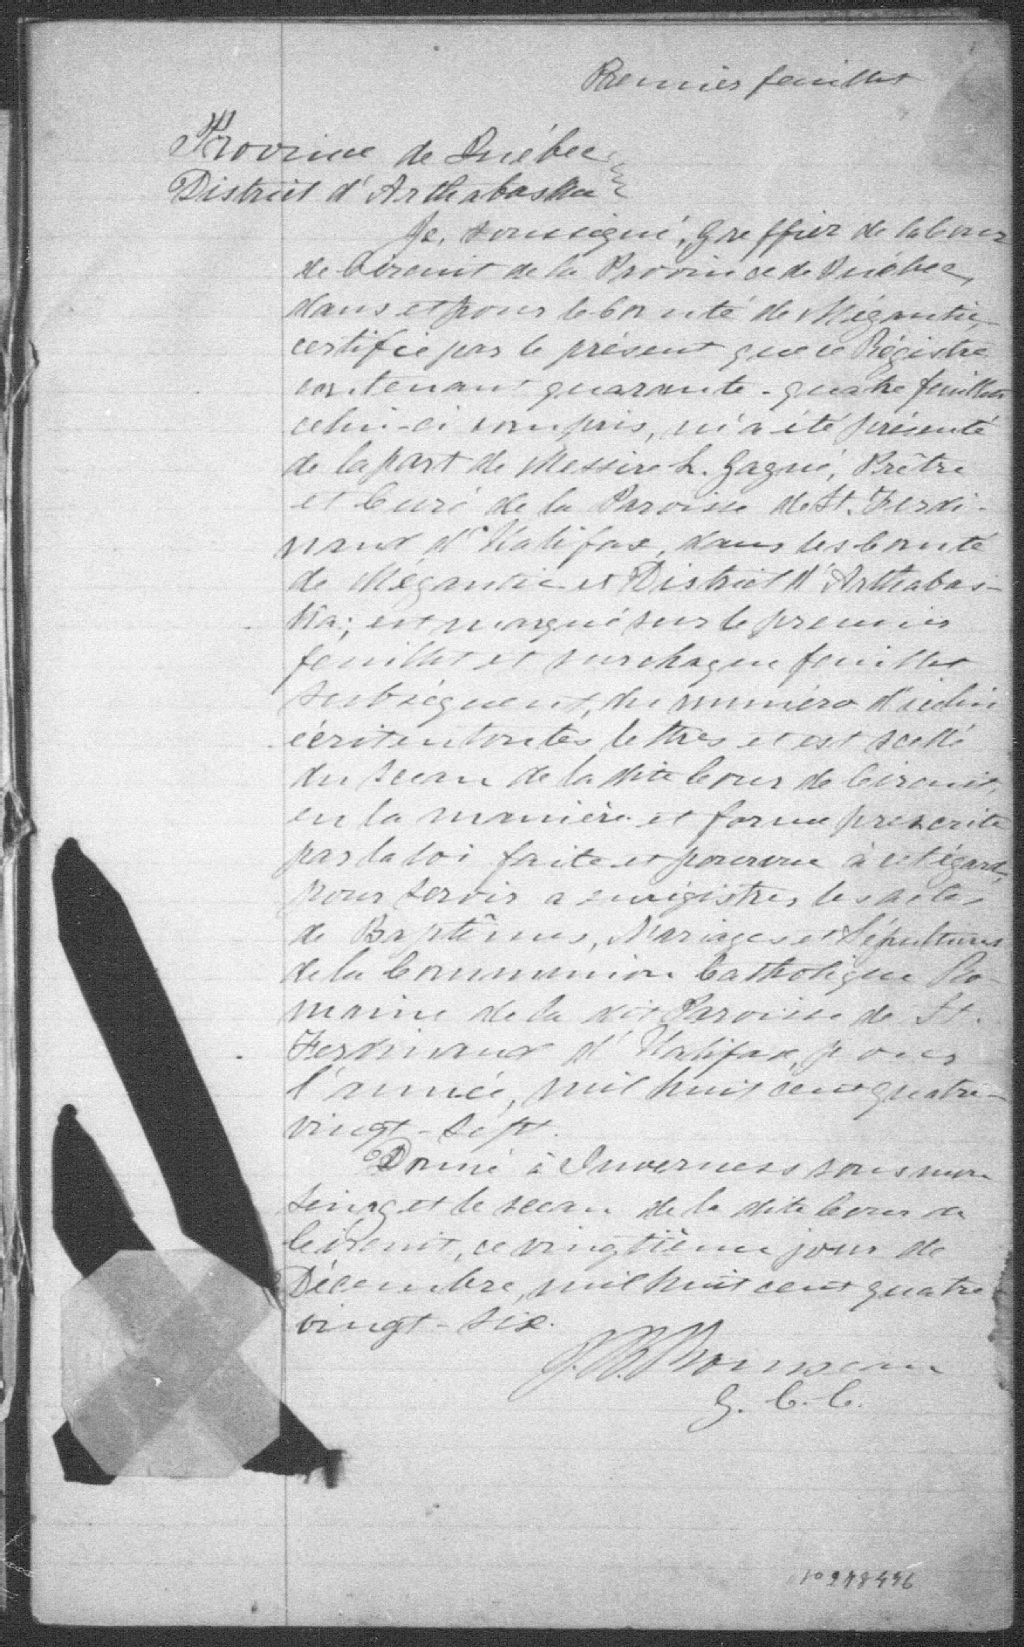 Premier feuillet
Province de Québec
District d'Arthabaska
Je, soussigné, Greffier de la Cour
de Circuit de la Province de Québec,
dans et pour le Comté de Mégantic,
certifie par le présent que ce Régistre
contenant quarante-quatre feuillets
celui-ci compris, m'a été présenté
de la part de Messire L. Gagné, Prêtre
et Curé de la Paroisse de St. Ferdi-
nand d'Halifax, dans les Comté
de Mégantic et District d'Arthabas-
ka; est marqué sur le premier
feuillet et sur chaque feuillet
subséquent, du numéro d'icelui
écrit en toutes lettres et est scellé
du sceau de la dite Cour de Circuit,
en la manière et forme prescrite
par la loi faite et pourvue à cet égard,
pour servir a enrégistrer les actes
de Baptêmes, Mariages et Sépultures
de la Communion Catholique Ro-
maine de la dit Paroisse de St.
Ferdinand d'Halifax, pour
l'année, mil huit cent quatre-
vingt-sept.
Donné à Inverness sous mon
seing et le sceau de la dite Cour de
Circuit, ce vingtième jour de
Décembre, mil huit cent quatre-
vingt-six.
J. B. Rousseau
G. C. C.